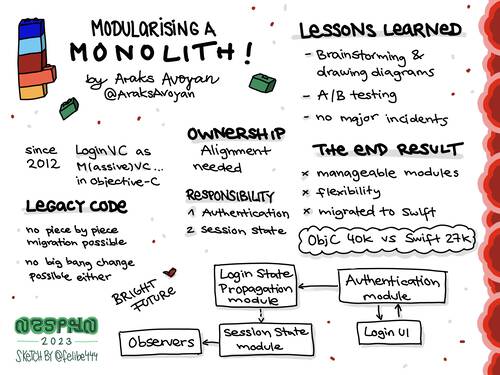 MODULARISING A
MONOLITH!
by Araks Avoyan
@AraksAvoyan
since
2012
LoginVC as
M(assive)VC...
in Objective-C
LEGACY CODE
no piece by piece
migration possible
no big bang change
possible either
OWNERSHIP
Alignment
needed
RESPONSIBILITY
1 Authentication
2 session state
LESSONS LEARNED
- Brainstorming &
drawing diagrams
- A/B testing
- no major incidents
THE END RESULT
x manageable modules
x flexibility
x migrated to Swift
ObjC 40k vs Swift 27k
BRIGHT
FUTURE
Login State
Propagation
module
Authentication
module
Login UI
Session State
module
Observers
NSSPAIN
2023
SKETCH BY @felibe444